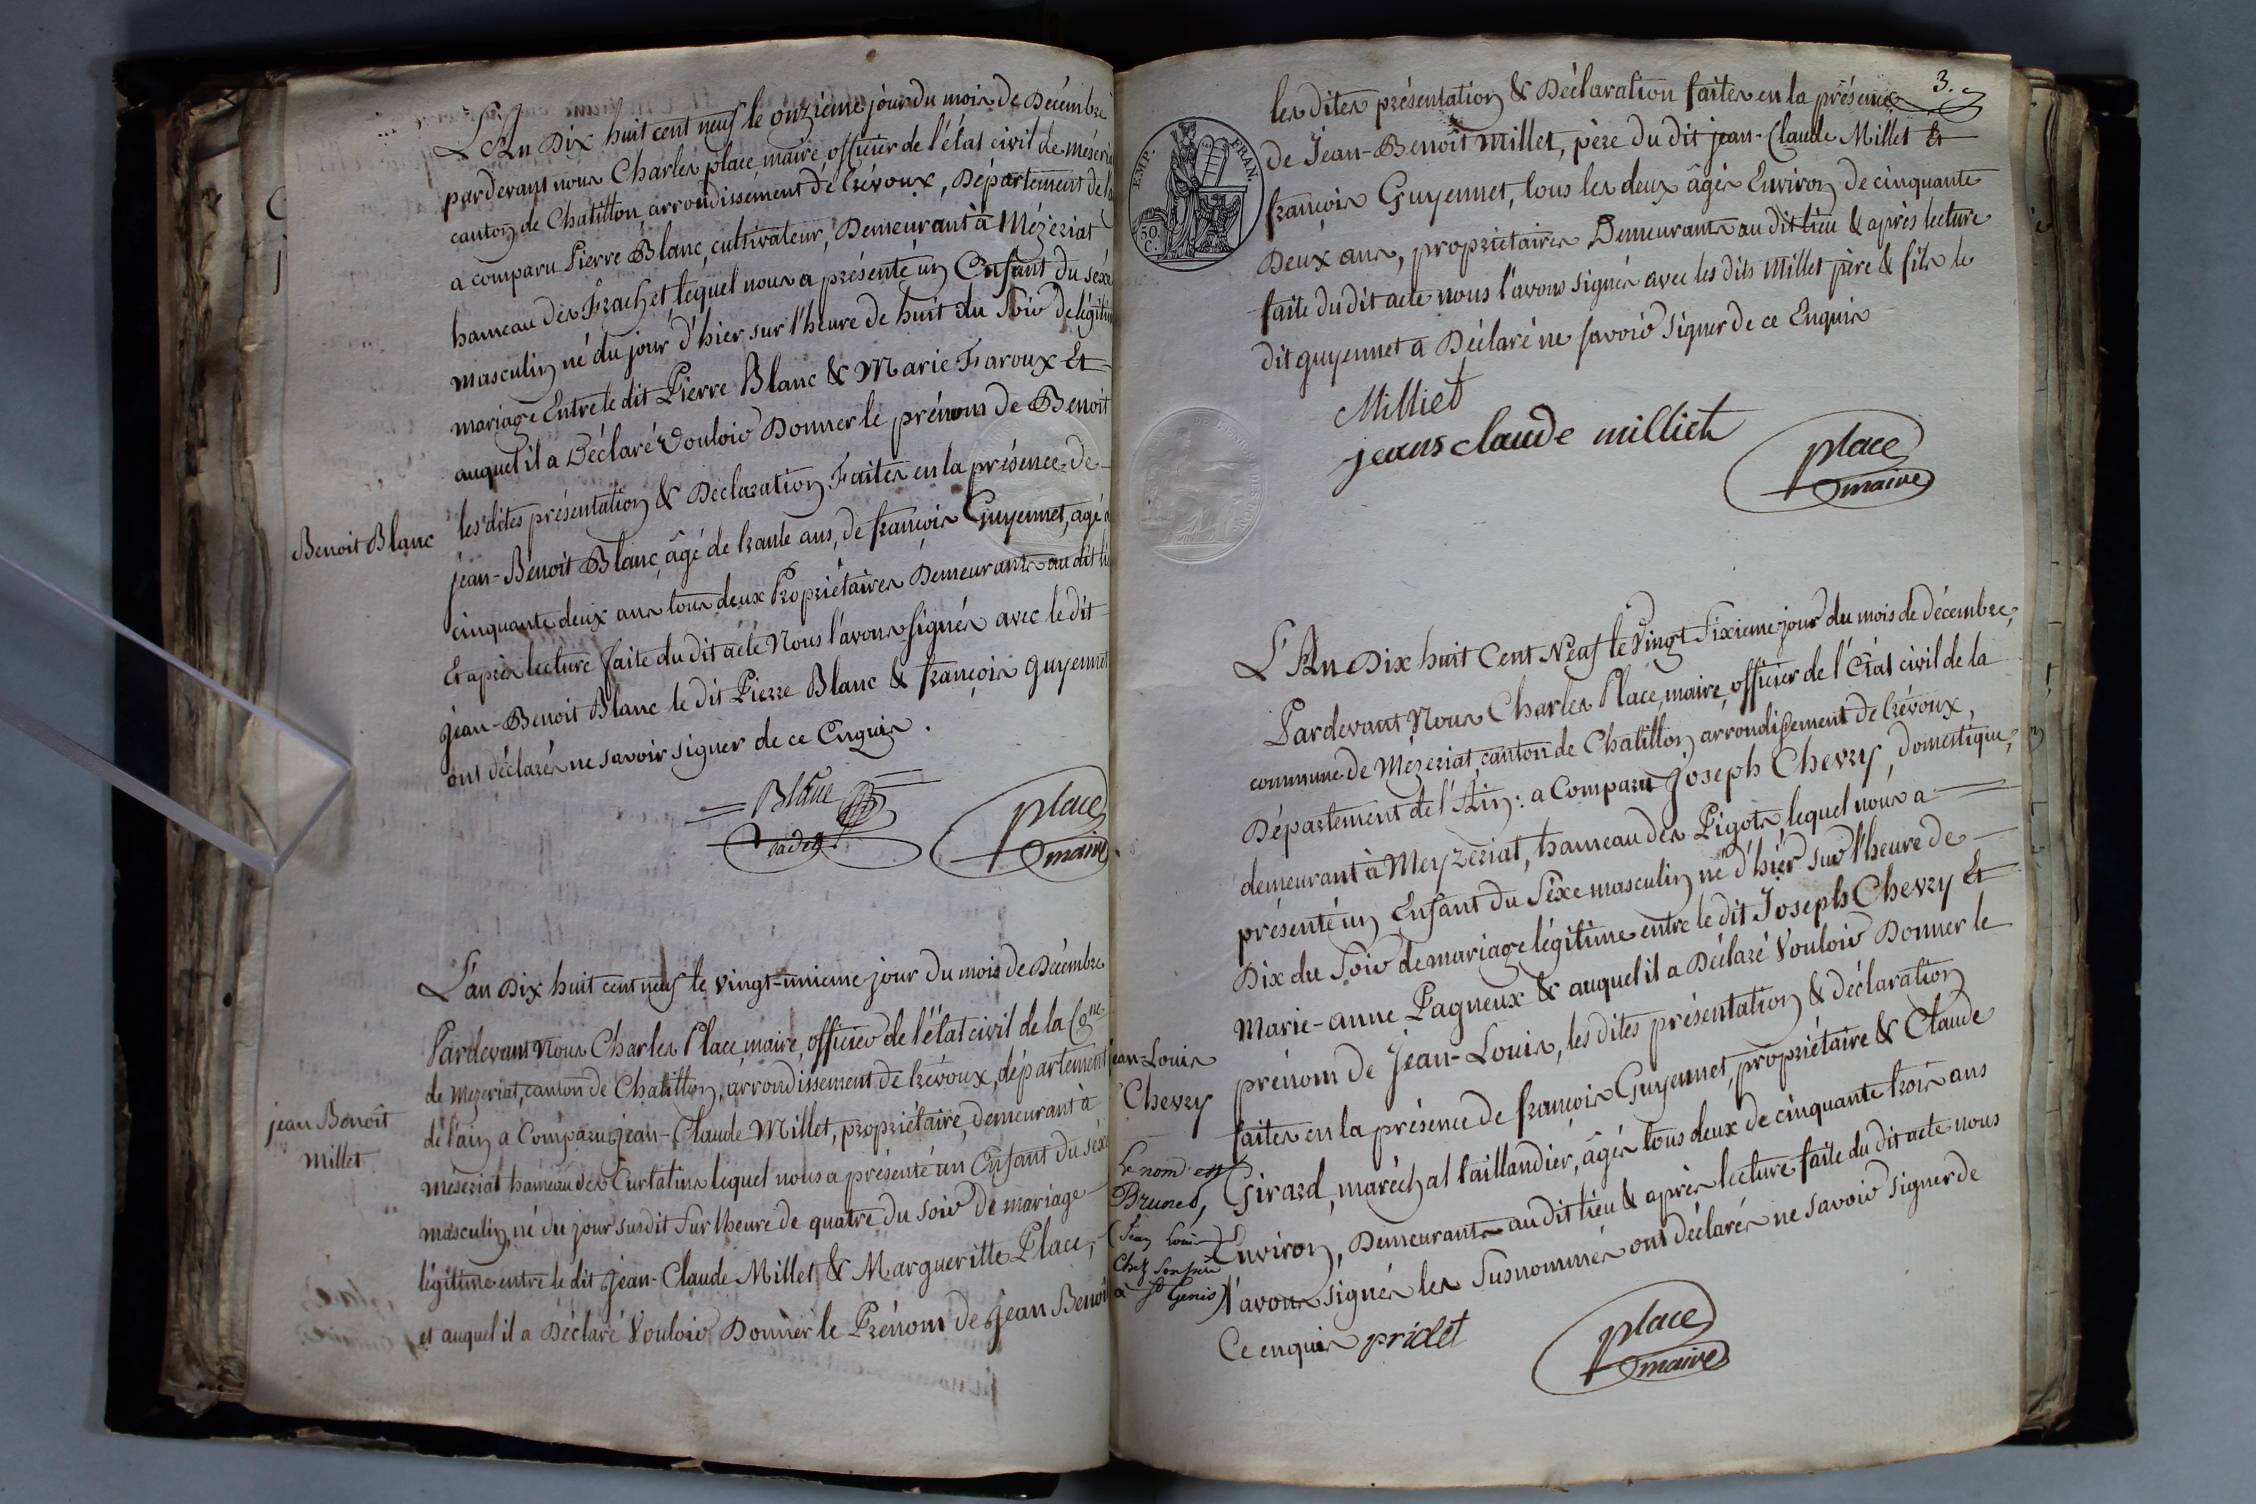 L'An Dix huit cent neuf le onzieme jour du mois de Décembre
pardevant nous Charles place, maire, officier de l'état civil de méséria
canton de Chatillon arrondissement de Trévoux, Département de l'a
a comparu Pierre Blanc, cultivateur, Demeurant à Mézeriat
hameau des Frachet lequel nous a présenté un Enfant du séxe
masculin né du jour d'hier sur l'heure de huit du soir de légitim
mariage Entre le dit Pierre Blanc & Marie Faroux Et
auquel il a Déclaré Vouloir Donner le prénom de Benoit
les dites présentation & Declaration Faites en la présence de
Benoit Blanc
jean-Benoit Blanc, âgé de trante ans, de françois Guyennet, agé d
cinquante deux ans tous deux Propriétaires Demeurants au dit li
Et après lecture faite du dit acte Nous l'avons signés avec le dit
jean-Benoit Blanc le dit Pierre Blanc & françois guyennet
ont déclarés ne savoir signer de ce Enquis.
Blanc
cadet
place
maire
L'an Dix huit cent neuf le vingt-unieme jour du mois de Décembre
Pardevant Nous Charles Place, maire, officier de l'état civil de la Cne
de Mezeriat, canton de Chatillon, arrondissement de Trévoux, département
de l'ain a Comparu jean-Claude Millet, propriétaire, demeurant à
jean Benoit
millet
méseriat hameau des Curtatins lequel nous a présenté un Enfant du séxe
masculin, né du jour susdit sur l'heure de quatre du soir de mariage
légitime entre le dit jean-Claude Millet & Margueritte Place,
et auquel il a Déclaré Vouloir Donner le Prénom de jean Benoit
3.
les dites présentation & Déclaration faites en la présence
de Jean-Benoit Millet, père du dit jean-Claude Millet Et
françois Guyennet, tous les deux âgés Environ de cinquante
Deux ans, propriétaires Demeurants au dit lieu & après lecture
faite du dit acte nous l'avons signés avec les dits Millet père & fils le
dit guyennet a Déclaré ne savoir signer de ce Enquis
EMP. FRAN.
50.
C.
Milliet
jeans claude milliet
place
maire
L'An Dix huit Cent Neuf le Vingt Sixieme jour du mois de décembre,
Pardevant Nous Charles Place, maire, officier de l'État civil de la
commune de Mézeriat, canton de Chatillon, arrondissement de Trévoux,
Département de l'Ain : a Comparu Joseph Chevry, domestique,
demeurant à Meyzeriat, hameau des Pigots lequel nous a
présenté un Enfant du Séxe masculin né d'hier sur l'heure de
Dix du Soir de mariage légitime entre le dit Joseph Chevry Et
Marie-anne Pagneux & auquel il a Déclaré Vouloir Donner le
prénom de Jean-Louis, les dites présentation & déclaration
faites en la présence de françois Guyennet, propriétaire & Claude
Girard, maréchal taillandier, âgés tous deux de cinquante trois ans
Environ, Demeurants au dit lieu & après lecture faite du dit acte nous
l'avons signés les Susnommés ont déclarés ne savoir signer de
Ce enquis pridet
jean-Louis
Chevry
Le nom est
Brunet,
(Jean Louis)
Chez son père
à St Genis)
place
maire